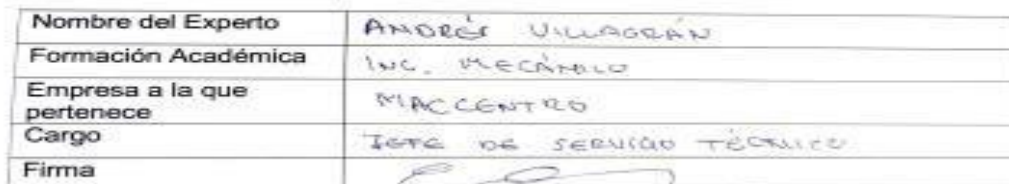 Nombre del Experto ANDRÉS VILLAGRÁN
Formación Académica ING. MECÁNICO
Empresa a la que
pertenece MACCENTRO
Cargo JEFE DE SERVICIO TÉCNICO
Firma